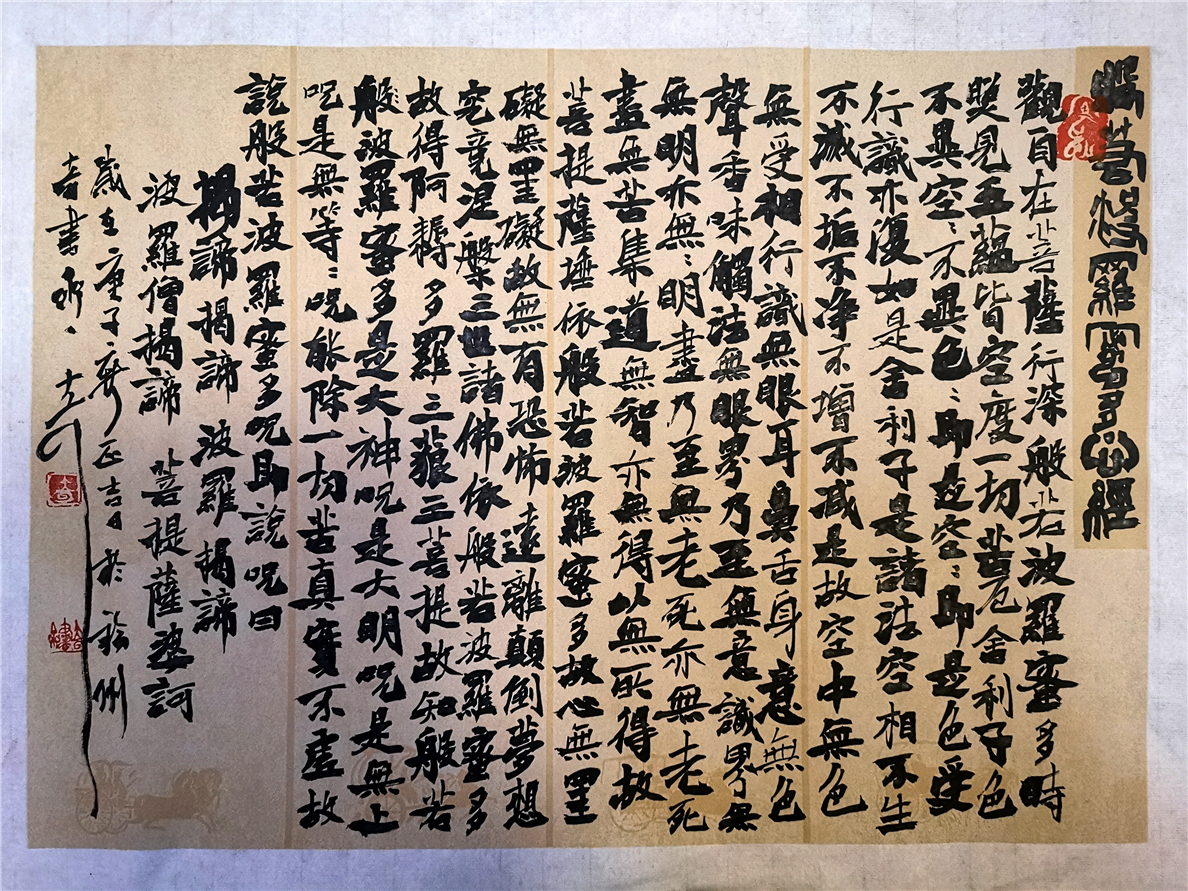 般若波羅蜜多心經
觀自在菩薩行深般若波羅蜜多時
照見五蘊皆空度一切苦厄舍利子色
不異空:不異色:即是空:即是色受
行識亦復如是舍利子是諸法空相不生
不滅不垢不净不增不减是故空中無色
無受相行識無眼耳鼻舌身意無色
聲香味觸法無眼界乃至無意識界無
無明亦無:明盡乃至無老死亦無老死
盡無苦集道無智亦無得以無所得故
菩提薩埵依般若波羅蜜多故心無罣
礙無罣礙故無有恐怖遠離顛倒夢想
究竟涅槃三世諸佛依般若波羅蜜多
故得阿耨多羅三藐三菩提故知般若
般波羅蜜多是大神咒是大明咒是無上
咒是無等:咒能除一切苦真實不虛故
說般若波羅蜜多咒即說咒曰
揭諦揭諦 波羅揭諦
波羅僧揭諦 菩提薩婆訶
歲在庚子 正吉日於福州
吉書